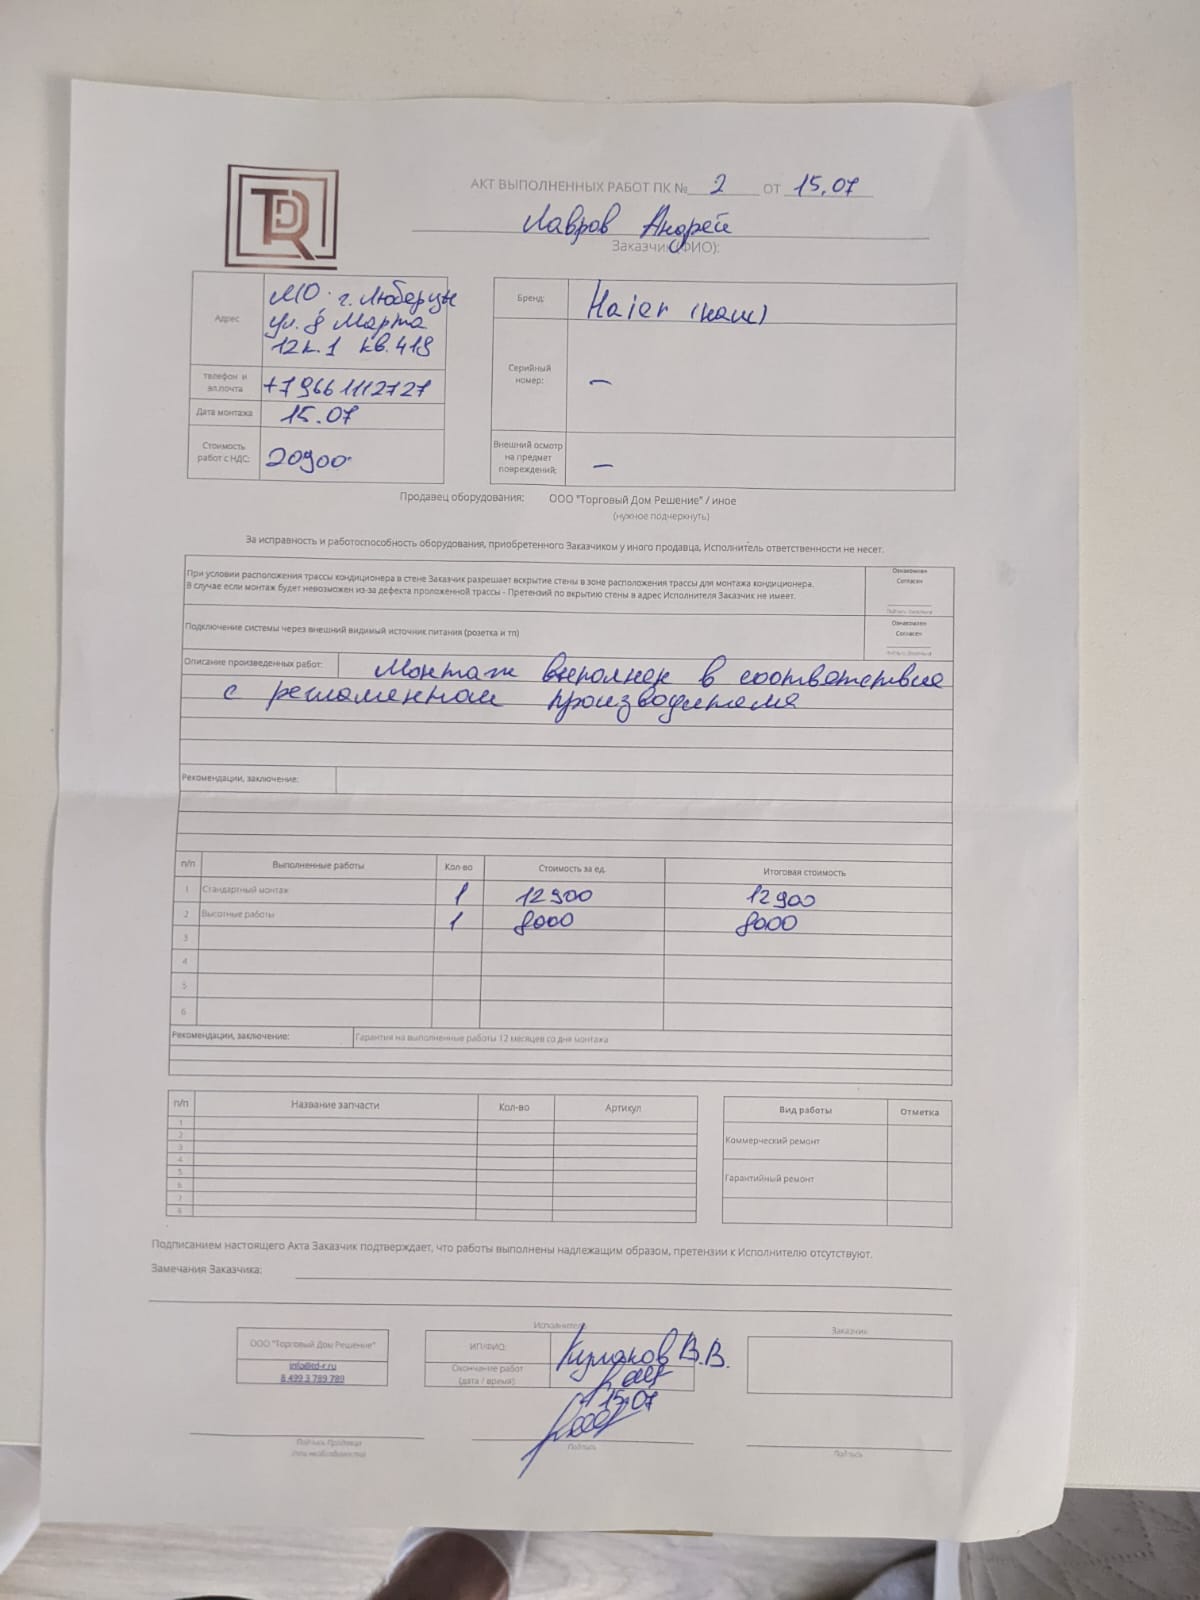 TDR
АКТ ВЫПОЛНЕННЫХ РАБОТ ПК № 2 ОТ 15.07
Лавров Андрей
Заказчик (ФИО):
Адрес
МО г. Люберцы
ул. 8 Марта
12к.1 кв.419
телефон и эл.почта
+7 966 1112727
Дата монтажа 15.07
Стоимость работ с НДС: 20900
Бренд: Haier (наш)
Серийный номер: —
Внешний осмотр на предмет повреждений: —
Продавец оборудования: ООО "Торговый Дом Решение" / иное
(нужное подчеркнуть)
За исправность и работоспособность оборудования, приобретенного Заказчиком у иного продавца, Исполнитель ответственности не несет.
При условии расположения трассы кондиционера в стене Заказчик разрешает вскрытие стены в зоне расположения трассы для монтажа кондиционера.
В случае если монтаж будет невозможен из-за дефекта проложенной трассы - Претензий по вкрытию стены в адрес Исполнителя Заказчик не имеет.
Ознакомлен
Согласен
Подключение системы через внешний видимый источник питания (розетка и тп)
Ознакомлен
Согласен
Описание произведенных работ: Монтаж выполнен в соответствие
с регламентом производителя
Рекомендации, заключение:
п/п Выполненные работы Кол-во Стоимость за ед. Итоговая стоимость
1 Стандартный монтаж 1 12900 12900
2 Высотные работы 1 8000 8000
3
4
5
6
Рекомендации, заключение: Гарантия на выполненные работы 12 месяцев со дня монтажа
п/п Название запчасти Кол-во Артикул
1
2
3
4
5
6
7
8
Вид работы Отметка
Коммерческий ремонт
Гарантийный ремонт
Подписанием настоящего Акта Заказчик подтверждает, что работы выполнены надлежащим образом, претензии к Исполнителю отсутствуют.
Замечания Заказчика:
Исполнитель
Заказчик
ООО "Торговый Дом Решение"
info@td-r.ru
8 499 3 789 789
ИП/ФИО: В.В.
Окончание работ (дата / время): 15.07
Подпись Продавца
(при необходимости)
Подпись
Подпись